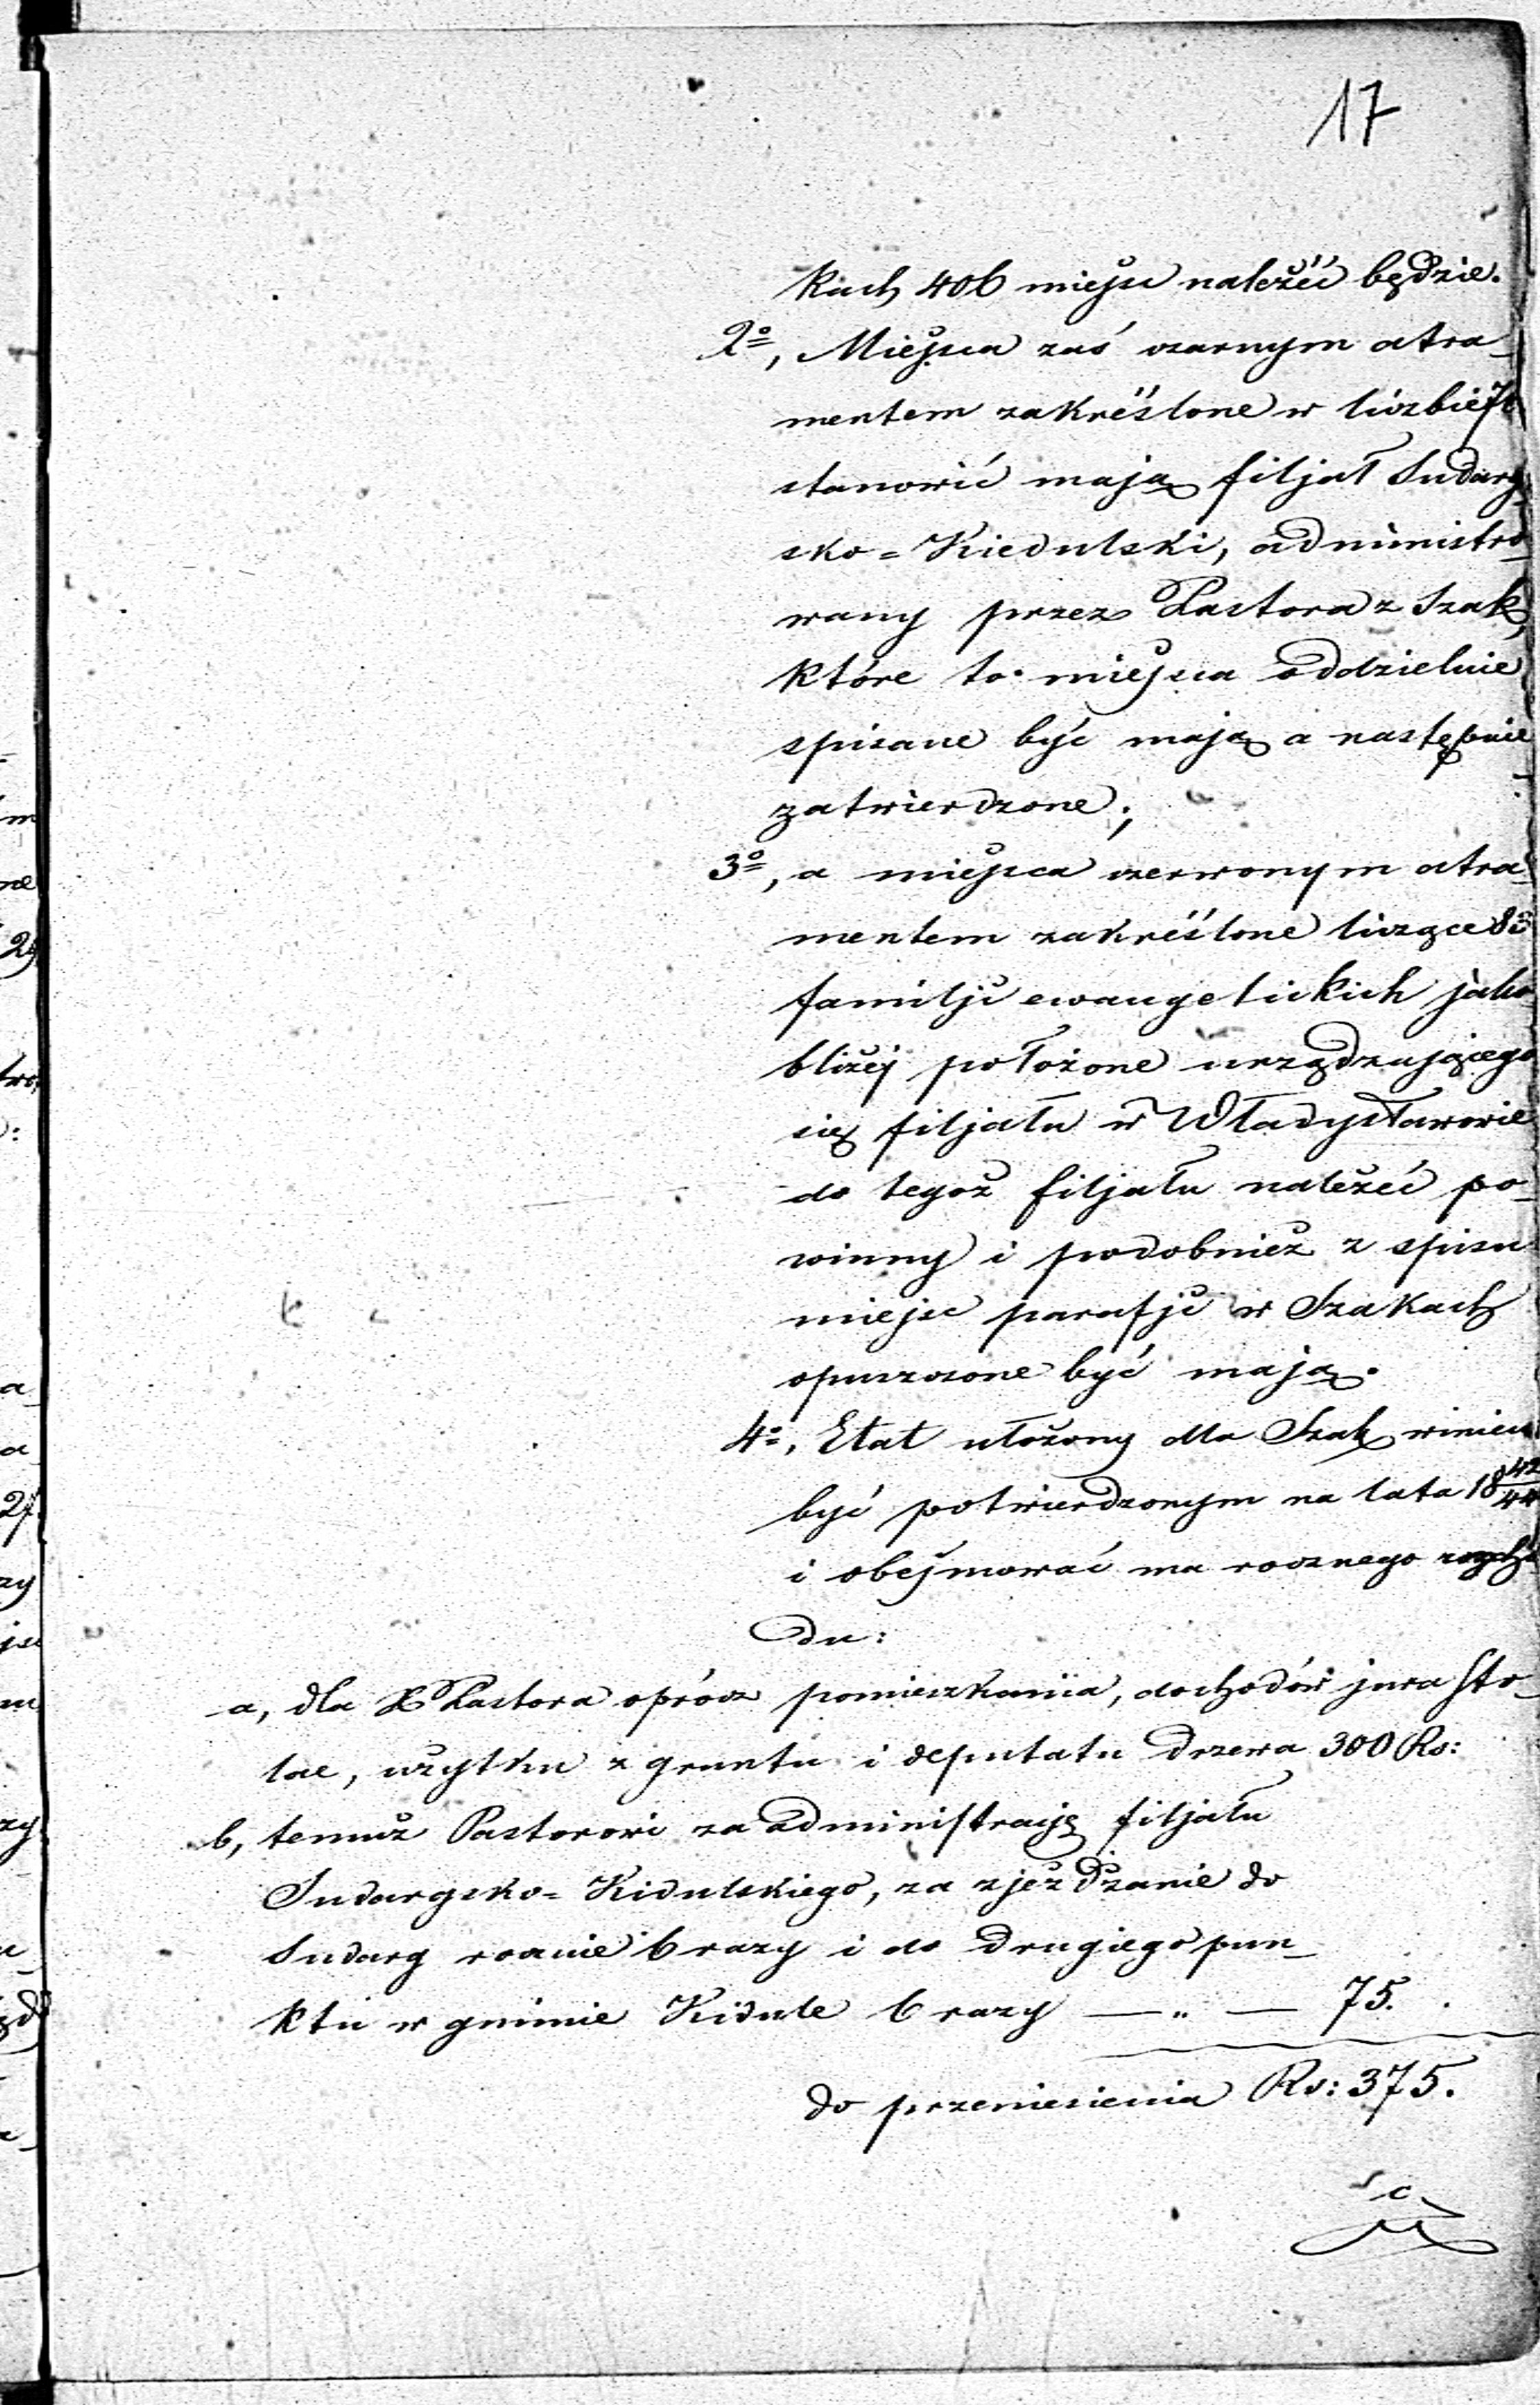 17
kach 406 miejsc należéć będzie.
2º, Miejsca zaś czarnym atra-
mentem zakréślone w liczbie
stanowić mają filjał Sudarg-
sko=Kiedulski, administro-
wany przez Pastora z Szak,
które to miejsca oddzielnie
spisane być mają a następnie
zatwierdzone;
3º, a miejsca czerwonym atra-
mentem zakréślone liczące 83
familji ewangelickich jako
bliżéj położone urządzającego
się filjału w Władysławowie
do tegoż filjału należéć po-
winny i podobnież z spisu
miejsc parafji w Szakach
opuszczone być mają.
4º, Etat ułożony dla Szak winien
być potwierdzonym na lata 18 42/44
i obejmować ma rocznego rozcho-
du:
a, dla X Pastora oprócz pomieszkania, dochodów jura sto-
lae, użytku z gruntu i deputatu drzewa 300 Rs:
b, temuż Pastorowi za administracją filjału
Sudargsko=Kidulskiego, za zjeżdżanie do
Sudarg rocznie 6 razy i do drugiego pun-
ktu w gminie Kidule 6 razy — „ — 75.
do przeniesienia Rs: 375.